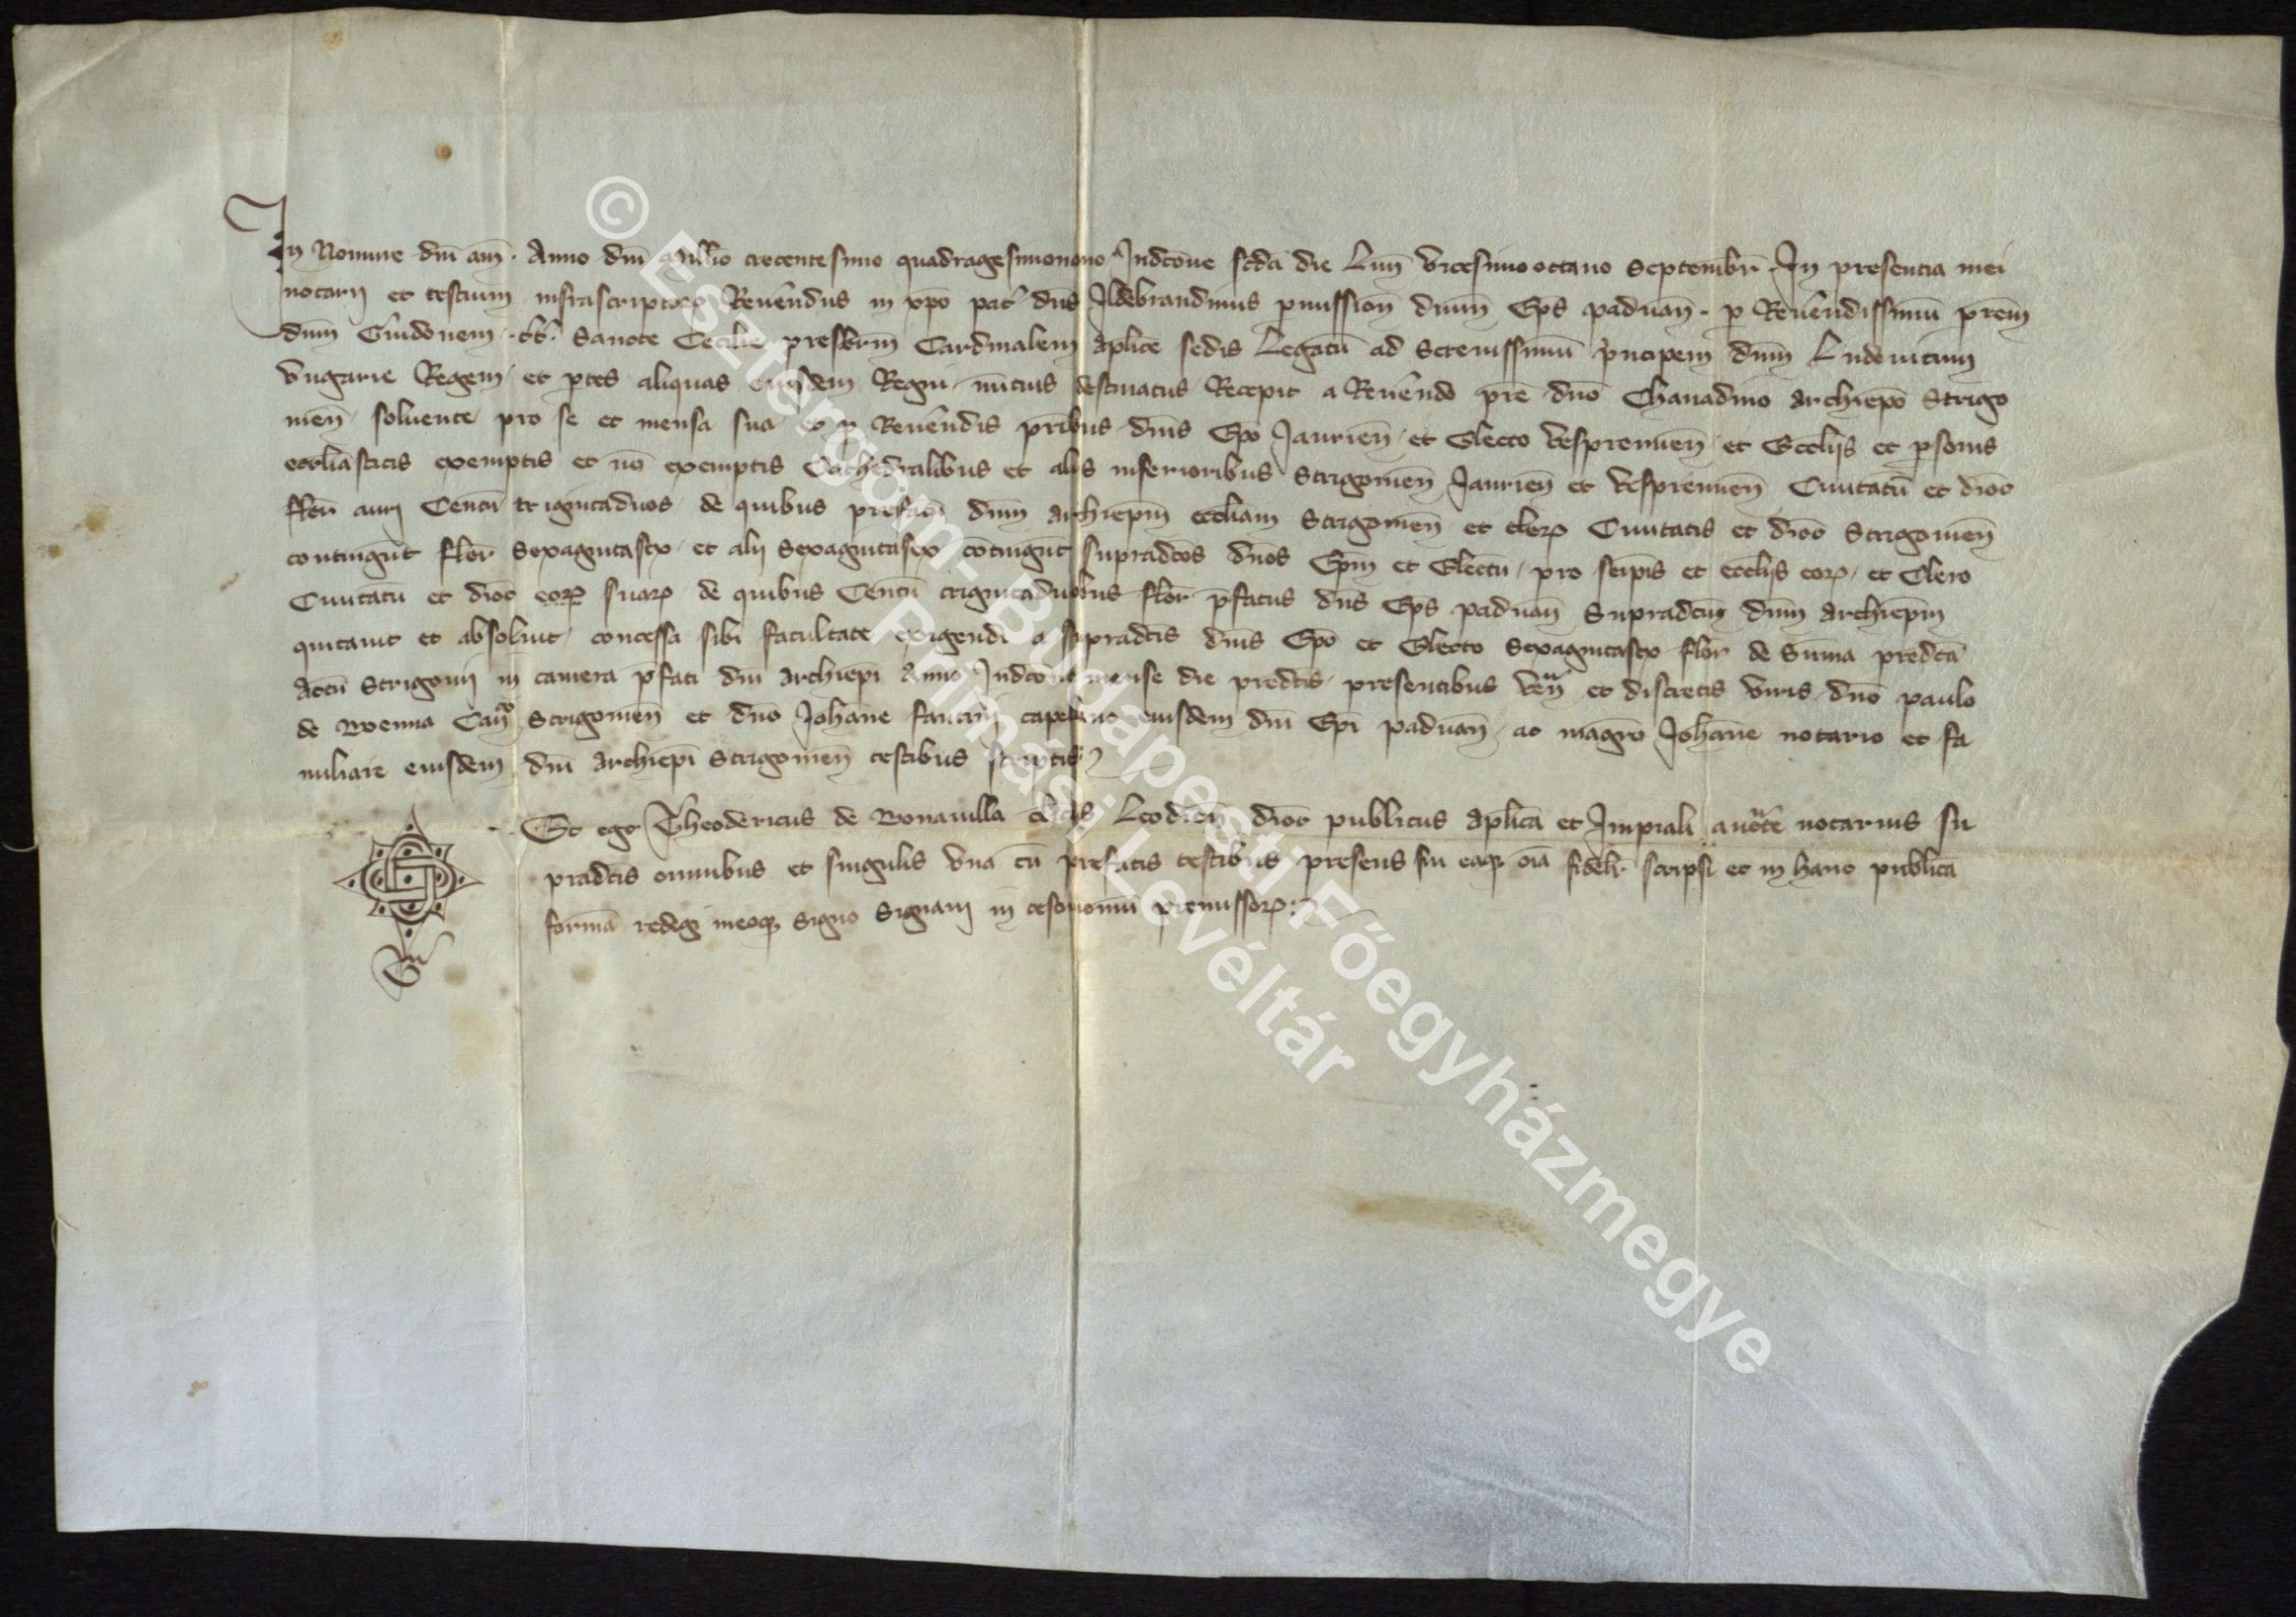 In Nomine dm̄ am̄. Anno dm̄ Millō trecentesimo quadragesimonono Indc̄one scd̄a die Lun̄ vicesimooctauo Septembr̄. In presentia mei
notarij et testium infrascriptoꝝ Reuēndus in xp̄o pat̉ dn̄s Ildebrandinus p̱missione diuin̄ Ep̄s paduan̄. ꝑ Reuēndissimū prēm
dn̄m Guidonem. tt̄. Sancte Cecilie presbrm̄ Cardinalem ap̄lice sedis Legatū ad Serenissimū pͥncipem dn̄m Ludouicum
vngarie Regem et ꝑtes aliquas eiusdem Regni nūtius destinatus Recepit a Reuēndo pr̄e dn̄o Chanadino archiep̄o Strigo
nien̄ soluente pro se et mensa sua et ꝓ Reuēndis prībus dn̄is Ep̄o Jaurien̄ et Electo Vesprimien̄ et Ecc̄lijs et ꝑsonis
eccl̄iasticis exemptis et nō exemptis Cathedralibus et alijs inferioribus Strigonien̄ Jaurien̄ et Vesprimien̄ Ciuitatū et dioc̄
flor̄ auri Centū trigintaduos de quibus prefatū dn̄m archiep̄m eccl̄iam Strigonien̄ et cleꝝ Ciuitatis et dioc̄ Strigonien̄
contingūt flor̄ Sexagintasex et alij Sexagintasex cōtingūt supradc̄os dn̄os Ep̄m et Electū pro se ip̄is et eccl̄ijs eoꝝ et Clero
Ciuitatū et dioc̄ eoꝝ suaꝝ de quibus Centū trigintaduobus flor̄ p̄fatus dn̄s Ep̄s paduan̄ Supradc̄um dn̄m archiep̄m
quitauit et absoluit concessa sibi facultate exigendi a supradc̄is dn̄is Ep̄o et Electo Sexagintasex flor̄ de Sūma predc̄a
Actū Strigonij in camera p̄fati dn̄i archiep̄i Anno Indc̄one mense die predc̄is presentibus ven̄ et discretis viris dn̄o paulo
de Can̄ Strigonien̄ et dn̄o Johanne capellano eiusdem dn̄i Ep̄i paduan̄ ac magr̄o Johāne notario et fa
miliare eiusdem dn̄i archiep̄i Strigonien̄ testibus
Et ego Theodericus de Bonauilla cl̄icus Leodien̄ dioc̄ publicus ap̄lica et Imp̱iali auct̄ate notarius su
pradc̄is omnibus et singulis vna cū prefatis testibus presens fui eaqꝫ oīa fidelr̄ scripsi et in hanc publicā
formā redegi meoqꝫ signo Signaui in testimoniū premissoꝝ
© Esztergom-Budapesti Főegyházmegye
Prímási Levéltár